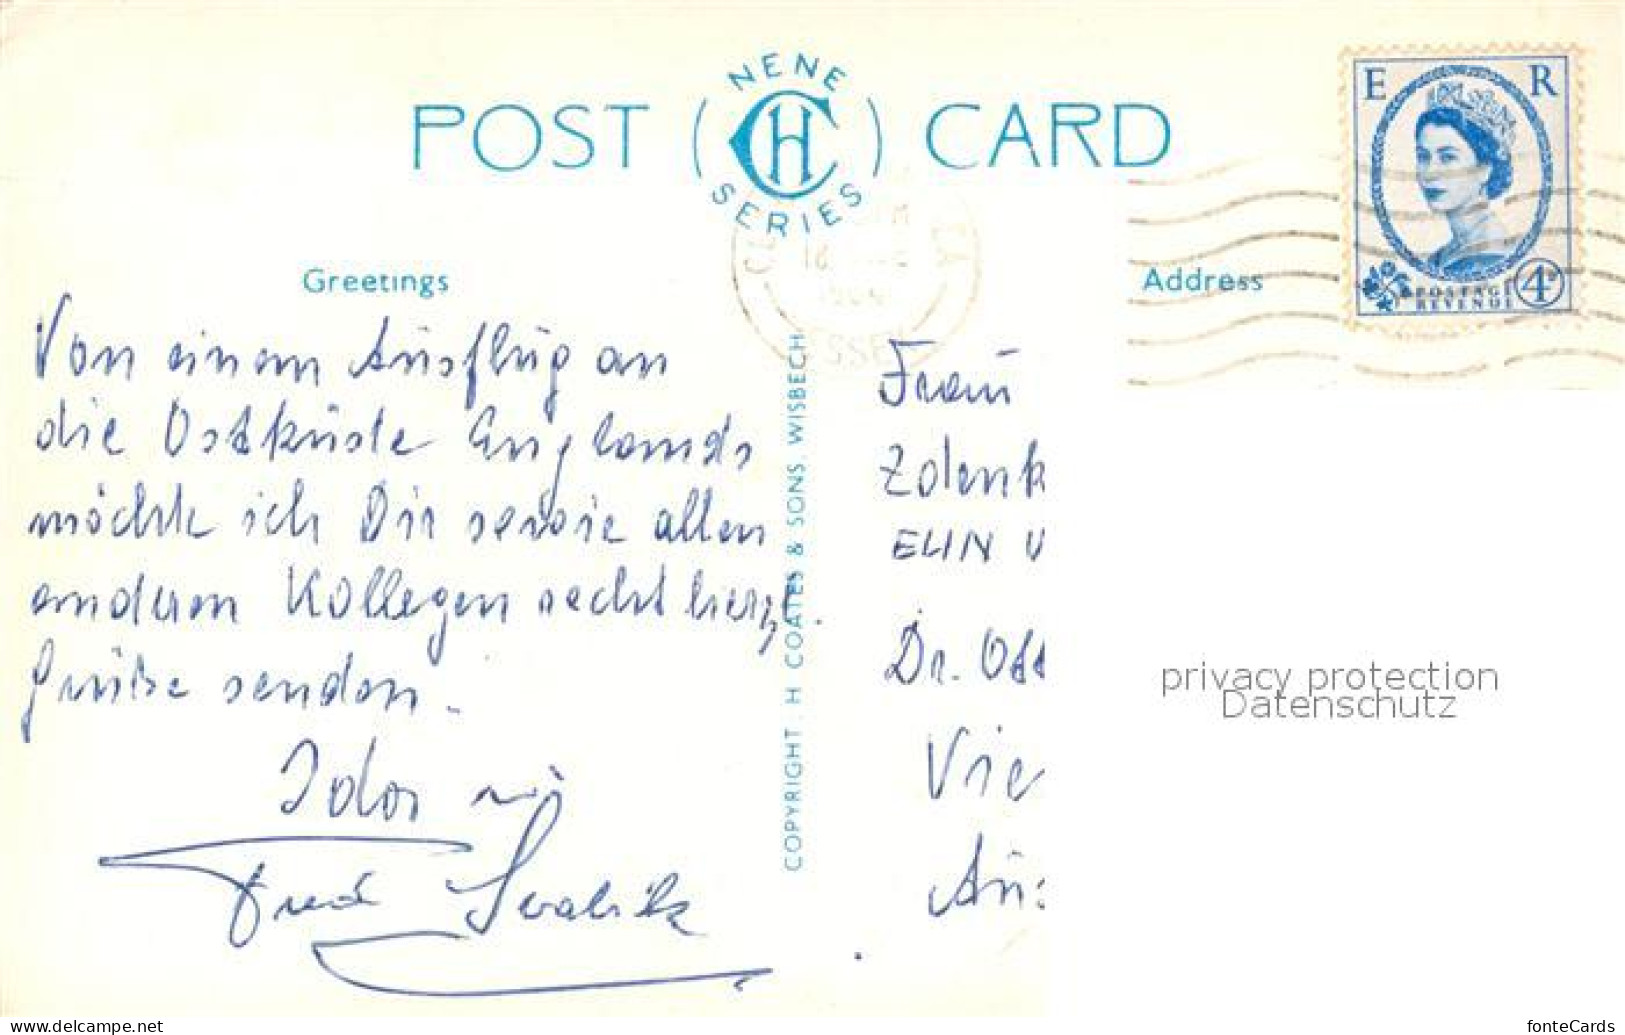 POST ( NENE CH SERIES ) CARD
E R
POSTAGE
REVENUE
4D
Greetings
Von einem Ausflug an
die Ostküste Englands
möchte ich Dir sowie allen
anderen Kollegen recht herzl.
Grüße senden.
COPYRIGHT, H COATES & SONS, WISBECH
Address
Frau
Zdenk
ELIN U
Dr. Ott
Vie
Aus
privacy protection
Datenschutz
www.delcampe.net
fonteCards